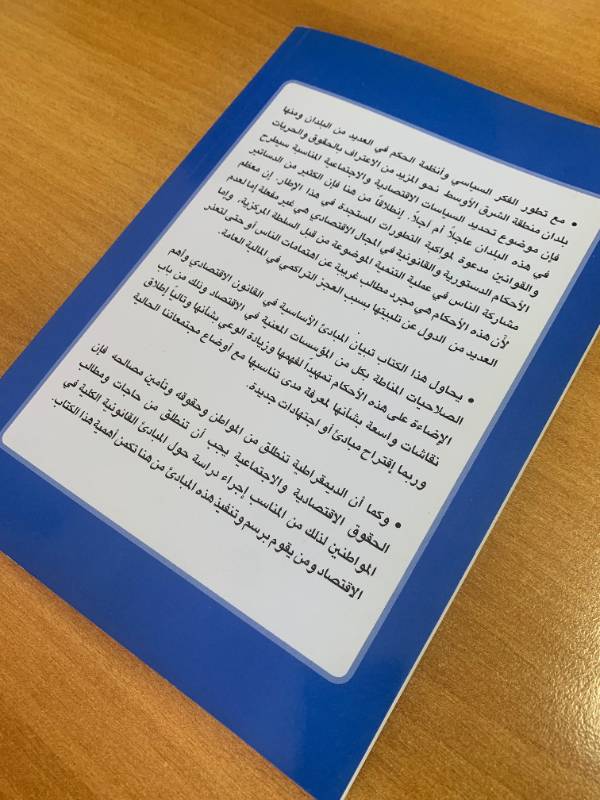 • مع تطور الفكر السياسي وأنظمة الحكم في العديد من البلدان ومنها
بلدان منطقة الشرق الأوسط نحو المزيد من الاعتراف بالحقوق والحريات
فإن موضوع تحديد السياسات الاقتصادية والاجتماعية المناسبة سيطرح
في هذه البلدان عاجلاً أم آجلاً. إنطلاقاً من هنا فإن الكثير من الدساتير
والقوانين مدعوة لمواكبة التطورات المستجدة في هذا الإطار. إن معظم
الأحكام الدستورية والقانونية في المجال الاقتصادي هي غير مفعلة إما لعدم
مشاركة الناس في عملية التنمية الموضوعة من قبل السلطة المركزية، وإما
لأن هذه الأحكام هي مجرد مطالب غريبة عن اهتمامات الناس أو حتى لتعذر
العديد من الدول عن تلبيتها بسبب العجز التراكمي في المالية العامة.
• يحاول هذا الكتاب تبيان المبادئ الأساسية في القانون الاقتصادي وأهم
الصلاحيات المناطة بكل من المؤسسات المعنية في الاقتصاد وذلك من باب
الإضاءة على هذه الأحكام تمهيداً لفهمها وزيادة الوعي بشأنها وتالياً إطلاق
نقاشات واسعة بشأنها لمعرفة مدى تناسبها مع أوضاع مجتمعاتنا الحالية
وربما إقتراح مبادئ أو اجتهادات جديدة.
• وكما أن الديمقراطية تنطلق من المواطن وحقوقه وتأمين مصالحه فإن
الحقوق الاقتصادية والاجتماعية يجب أن تنطلق من حاجات ومطالب
المواطنين لذلك من المناسب إجراء دراسة حول المبادئ القانونية الكلية في
الاقتصاد ومن يقوم برسم وتنفيذ هذه المبادئ من هنا تكمن أهمية هذا الكتاب.